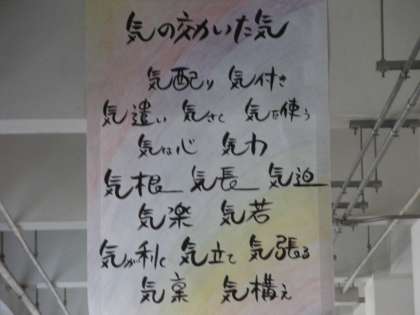 気の効いた気
気配り 気付き
気遣い 気さく 気を使う
気は心 気力
気根 気長 気迫
気楽 気若
気が利く 気立て 気張る
気稟 気構え